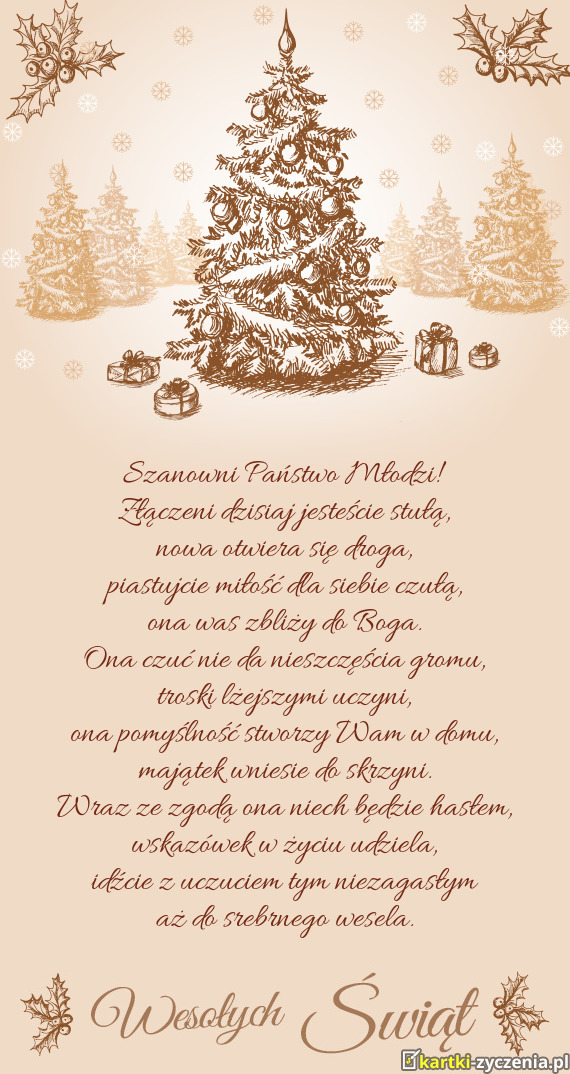 Szanowni Państwo Młodzi!
Złączeni dzisiaj jesteście stułą,
nowa otwiera się droga,
piastujcie miłość dla siebie czułą,
ona was zbliży do Boga.
Ona czuć nie da nieszczęścia gromu,
troski lżejszymi uczyni,
ona pomyślność stworzy Wam w domu,
majątek wniesie do skrzyni.
Wraz ze zgodą ona niech będzie hasłem,
wskazówek w życiu udziela,
idźcie z uczuciem tym niezagasłym
aż do srebrnego wesela.
Wesołych Świąt
kartki-zyczenia.pl